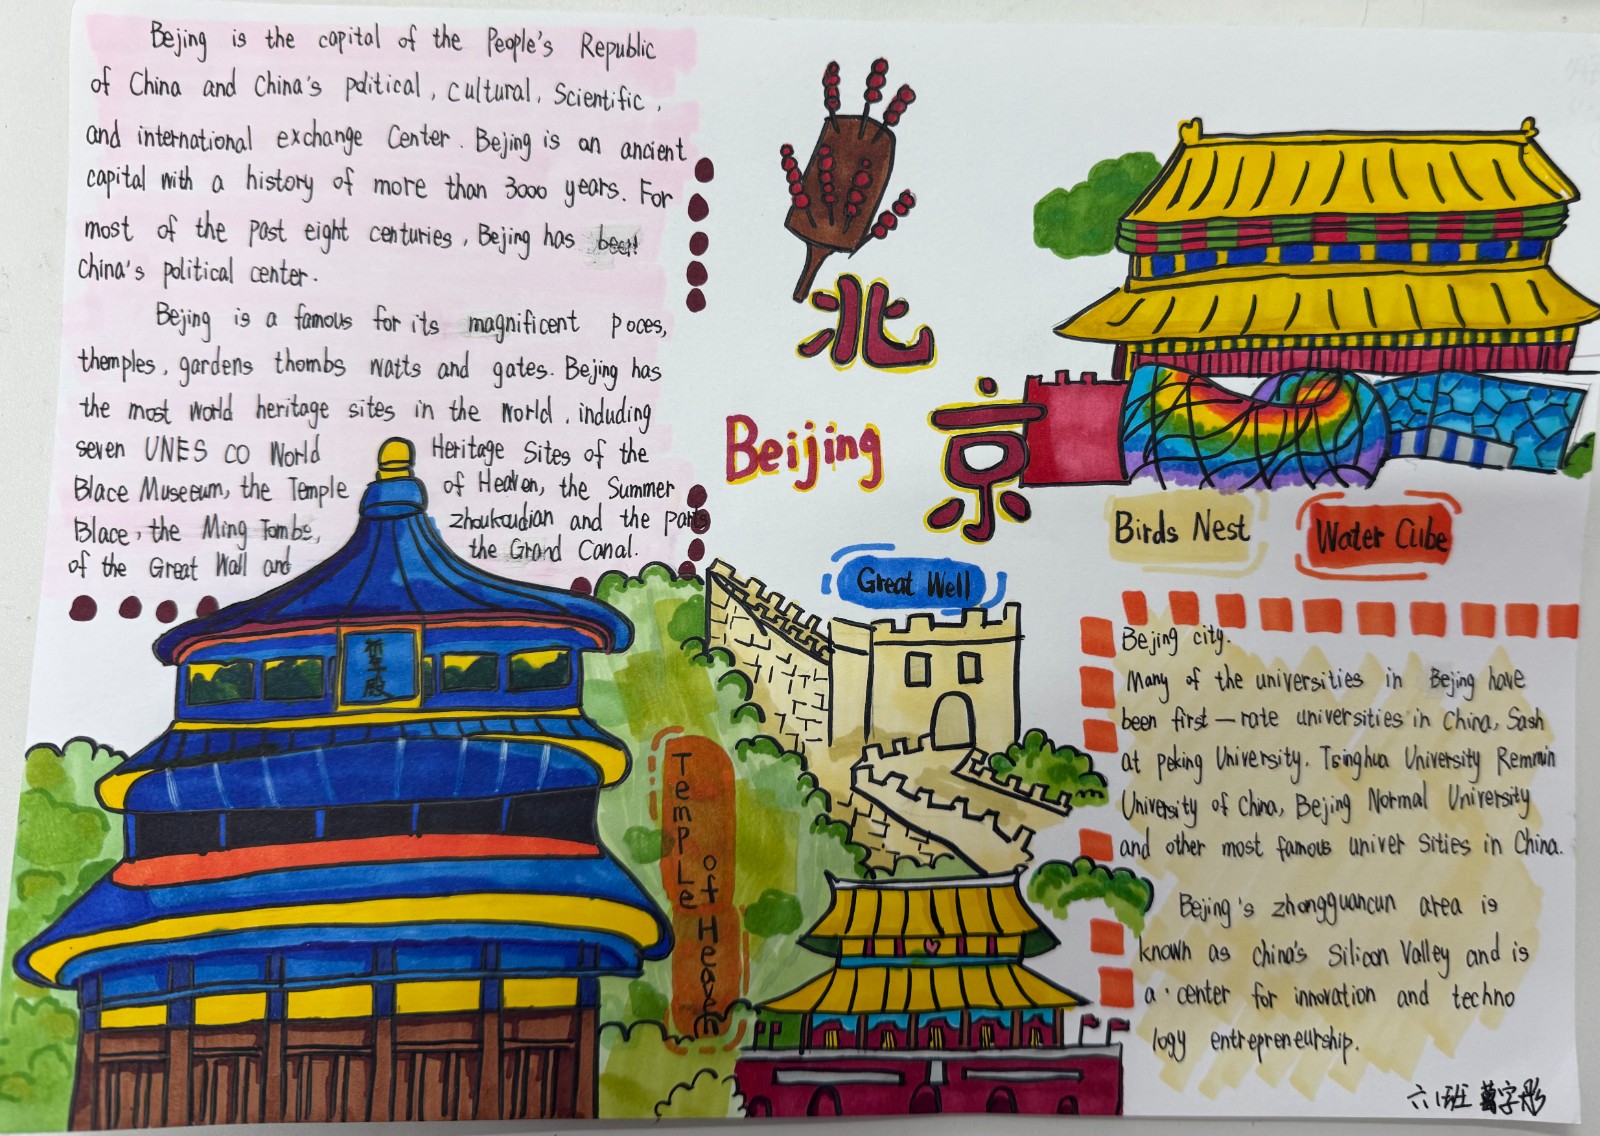 Bejing is the capital of the People's Republic
of China and China's pditical, cultural, Scientific,
and international exchange Center. Bejing is an ancient
capital with a history of more than 3000 years. For
most of the past eight centuries, Bejing has been
China's political center.
Bejing is a famous for its magnificent poces,
themples, gardens thombs watts and gates. Bejing has
the most world heritage sites in the world, induding
seven UNES CO World Heritage Sites of the
Blace Museeum, the Temple of Heaven, the Summer
Blace, the Ming Tombs, zhoukoudian and the parts
of the Great Wall and the Grand Canal.
北
京
Beijing
Birds Nest
Water Cube
Great Well
祈年殿
Temple of Heaven
Bejing city.
Many of the universities in Bejing have
been first-rate universities in China, Sash
at peking University. Tsinghua University Remmin
University of China, Bejing Normal University
and other most famous univer sities in China.
Bejing's zhongguancun area is
known as china's Silicon Valley and is
a·center for innovation and techno
logy entrepreneurship.
六1班 葛字彤